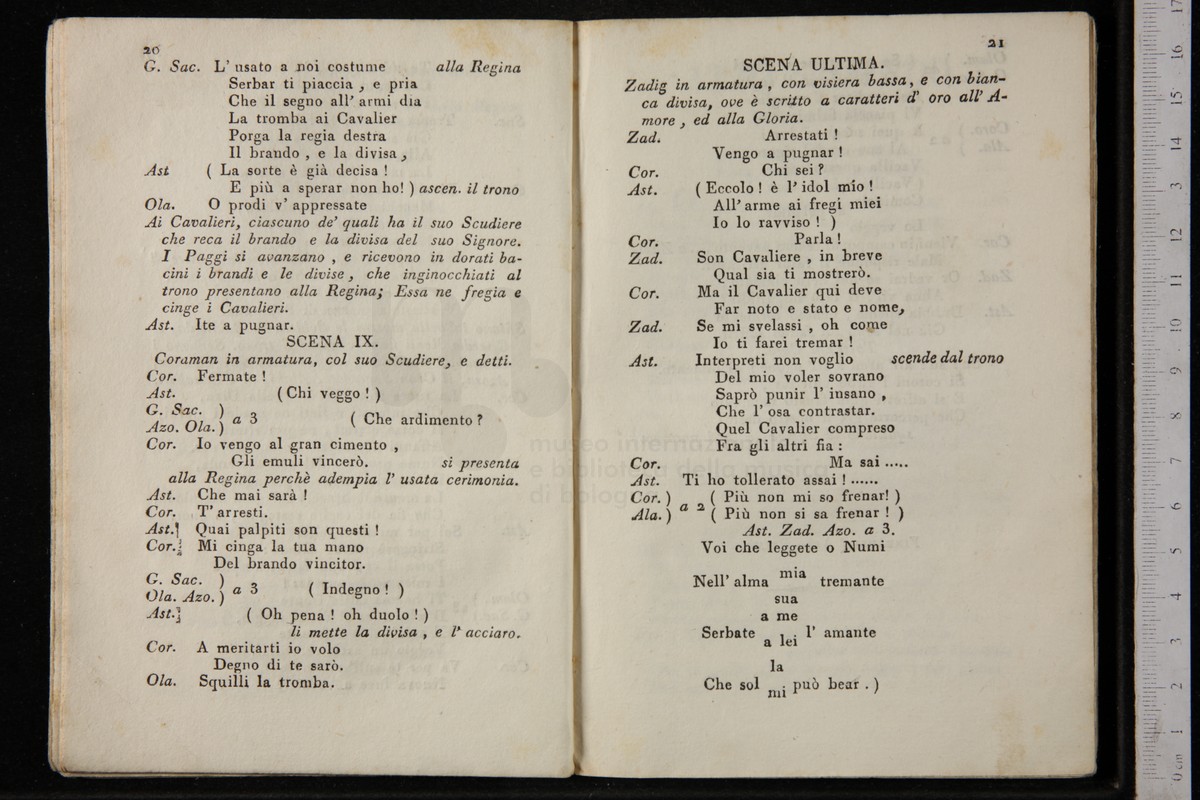 20
G. Sac. L' usato a noi costume alla Regina
Serbar ti piaccia , e pria
Che il segno all' armi dia
La tromba ai Cavalier
Porga la regia destra
Il brando , e la divisa ,
Ast ( La sorte è già decisa !
E più a sperar non ho! ) ascen. il trono
Ola. O prodi v' appressate
Ai Cavalieri, ciascuno de' quali ha il suo Scudiere
che reca il brando e la divisa del suo Signore.
I Paggi si avanzano , e ricevono in dorati ba-
cini i brandi e le divise , che inginocchiati al
trono presentano alla Regina; Essa ne fregia e
cinge i Cavalieri.
Ast. Ite a pugnar.
SCENA IX.
Coraman in armatura, col suo Scudiere, e detti.
Cor. Fermate !
Ast. ( Chi veggo ! )
G. Sac. )
Azo. Ola. ) a 3 ( Che ardimento ?
Cor. Io vengo al gran cimento ,
Gli emuli vincerò. si presenta
alla Regina perchè adempia l' usata cerimonia.
Ast. Che mai sarà !
Cor. T' arresti.
Ast. Quai palpiti son questi !
Cor. Mi cinga la tua mano
Del brando vincitor.
G. Sac. )
Ola. Azo. ) a 3 ( Indegno ! )
Ast. ( Oh pena ! oh duolo ! )
li mette la divisa , e l' acciaro.
Cor. A meritarti io volo
Degno di te sarò.
Ola. Squilli la tromba.
21
SCENA ULTIMA.
Zadig in armatura , con visiera bassa, e con bian-
ca divisa, ove è scritto a caratteri d' oro all' A-
more , ed alla Gloria.
Zad. Arrestati !
Vengo a pugnar !
Cor. Chi sei ?
Ast. ( Eccolo ! è l' idol mio !
All' arme ai fregi miei
Io lo ravviso ! )
Cor. Parla !
Zad. Son Cavaliere , in breve
Qual sia ti mostrerò.
Cor. Ma il Cavalier qui deve
Far noto e stato e nome,
Zad. Se mi svelassi , oh come
Io ti farei tremar !
Ast. Interpreti non voglio scende dal trono
Del mio voler sovrano
Saprò punir l' insano ,
Che l' osa contrastar.
Quel Cavalier compreso
Fra gli altri fia :
Cor. Ma sai .....
Ast. Ti ho tollerato assai ! ......
Cor. ) a 2 ( Più non mi so frenar! )
Ala. ) ( Più non si sa frenar ! )
Ast. Zad. Azo. a 3.
Voi che leggete o Numi
Nell' alma mia tremante
sua
a me
Serbate a lei l' amante
la
Che sol mi può bear . )
museo internazionale
e biblioteca della musica
di bologna
17
16
15
14
13
12
11
10
9
8
7
6
5
4
3
2
1
0 cm